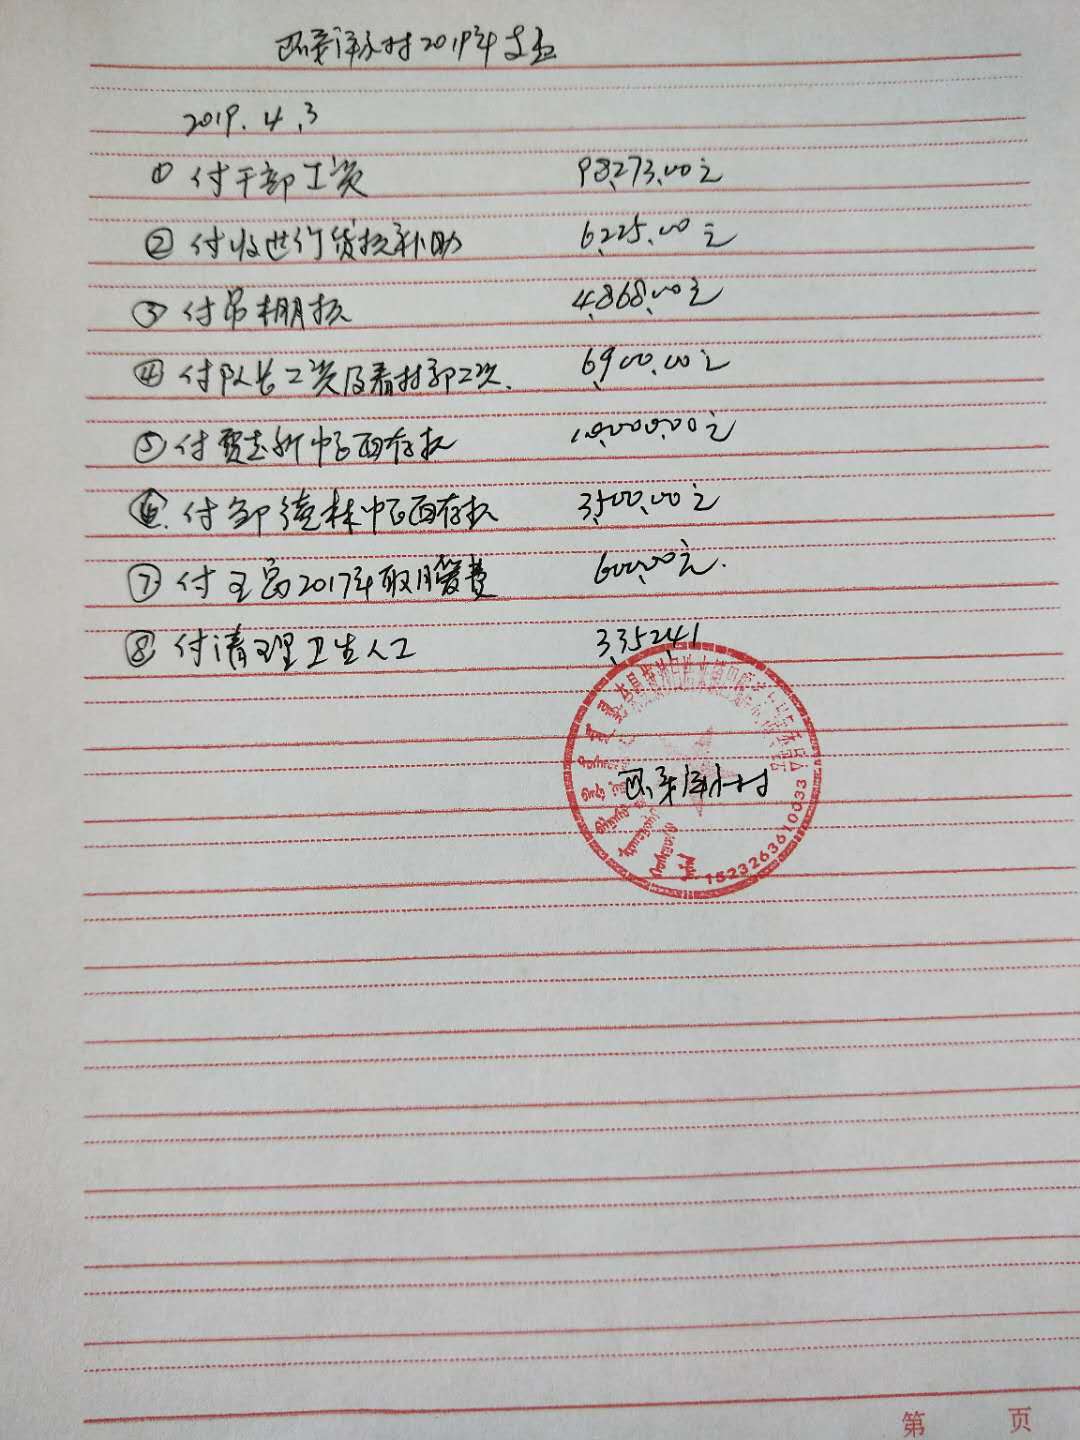 2019年支出
2019.4.3
① 付干部工资 98,273.00元
② 付收世行贷款补助 6,225.00元
③ 付吊棚款 4,868.00元
④ 付队长工资及看村部工资. 6,900.00元
⑤ 付贾志新帐面存款 10,000.00元
⑥ 付邹德林帐面存款 3,500.00元
⑦ 付王富2017年取月管费 600.00元.
⑧ 付清理卫生人工 3,352.41
村
1523263610033
第 页